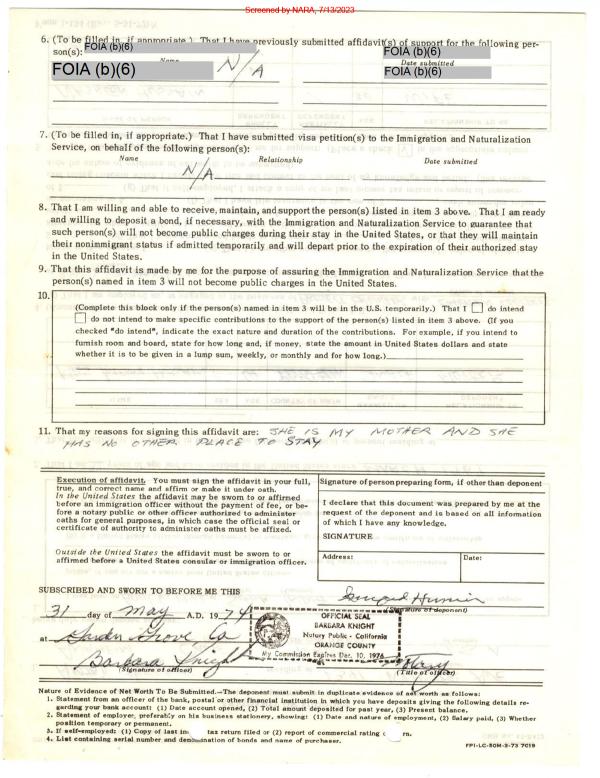 Screened by NARA, 7/13/2023
6. (To be filled in, if appropriate.) That I have previously submitted affidavit(s) of support for the following per-
son(s): FOIA (b)(6) FOIA (b)(6)
Name Date submitted
FOIA (b)(6) N/A FOIA (b)(6)
7. (To be filled in, if appropriate.) That I have submitted visa petition(s) to the Immigration and Naturalization
Service, on behalf of the following person(s):
Name Relationship Date submitted
N/A
8. That I am willing and able to receive, maintain, and support the person(s) listed in item 3 above. That I am ready
and willing to deposit a bond, if necessary, with the Immigration and Naturalization Service to guarantee that
such person(s) will not become public charges during their stay in the United States, or that they will maintain
their nonimmigrant status if admitted temporarily and will depart prior to the expiration of their authorized stay
in the United States.
9. That this affidavit is made by me for the purpose of assuring the Immigration and Naturalization Service that the
person(s) named in item 3 will not become public charges in the United States.
10.
(Complete this block only if the person(s) named in item 3 will be in the U.S. temporarily.) That I do intend
do not intend to make specific contributions to the support of the person(s) listed in item 3 above. (If you
checked "do intend", indicate the exact nature and duration of the contributions. For example, if you intend to
furnish room and board, state for how long and, if money, state the amount in United States dollars and state
whether it is to be given in a lump sum, weekly, or monthly and for how long.)
11. That my reasons for signing this affidavit are: SHE IS MY MOTHER AND SHE
HAS NO OTHER PLACE TO STAY
Execution of affidavit. You must sign the affidavit in your full,
true, and correct name and affirm or make it under oath.
In the United States the affidavit may be sworn to or affirmed
before an immigration officer without the payment of fee, or be-
fore a notary public or other officer authorized to administer
oaths for general purposes, in which case the official seal or
certificate of authority to administer oaths must be affixed.
Outside the United States the affidavit must be sworn to or
affirmed before a United States consular or immigration officer.
Signature of person preparing form, if other than deponent
I declare that this document was prepared by me at the
request of the deponent and is based on all information
of which I have any knowledge.
SIGNATURE
Address: Date:
SUBSCRIBED AND SWORN TO BEFORE ME THIS
(Signature of deponent)
31 day of May A.D. 1974
at Garden Grove Ca
OFFICIAL SEAL
BARBARA KNIGHT
Notary Public - California
ORANGE COUNTY
My Commission Expires Dec. 10, 1976
Barbara Knight
(Signature of officer) (Title of officer)
Nature of Evidence of Net Worth To Be Submitted.—The deponent must submit in duplicate evidence of net worth as follows:
1. Statement from an officer of the bank, postal or other financial institution in which you have deposits giving the following details re-
garding your bank account: (1) Date account opened, (2) Total amount deposited for past year, (3) Present balance.
2. Statement of employer, preferably on his business stationery, showing: (1) Date and nature of employment, (2) Salary paid, (3) Whether
position temporary or permanent.
3. If self-employed: (1) Copy of last tax return filed or (2) report of commercial rating
4. List containing serial number and denomination of bonds and name of purchaser.
FPI-LC-50M-3-73 7019